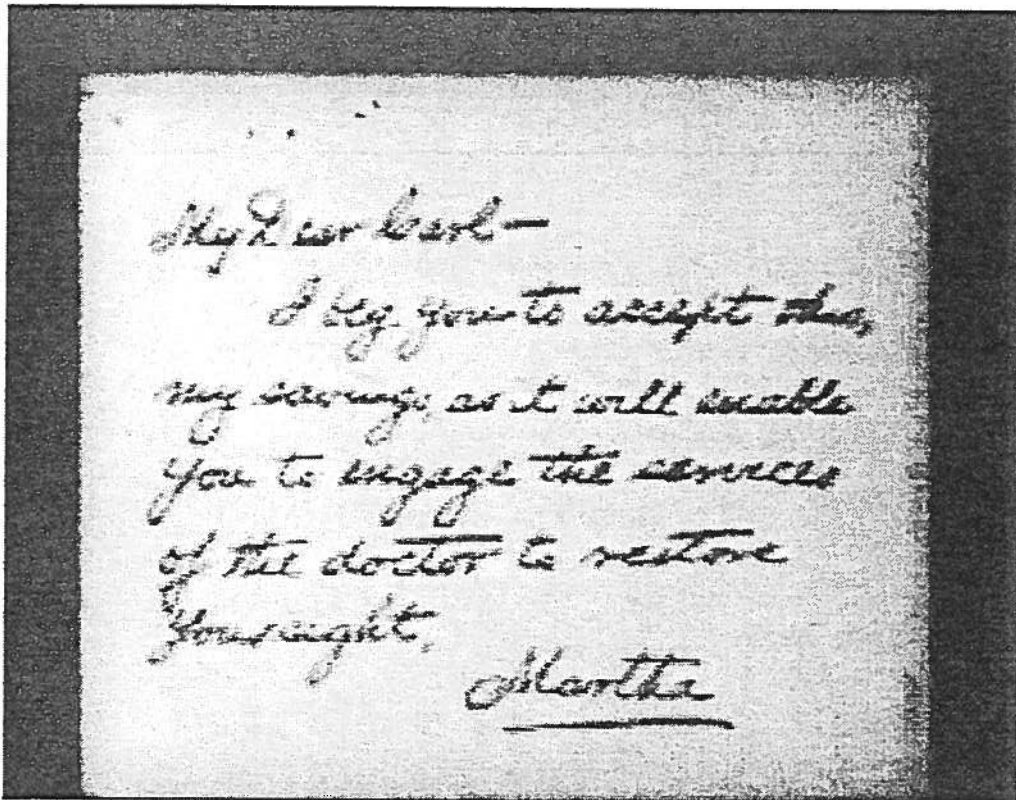 My Dear Carl—
I beg you to accept this,
my savings as it will enable
you to engage the services
of the doctor to restore
your sight.
Martha